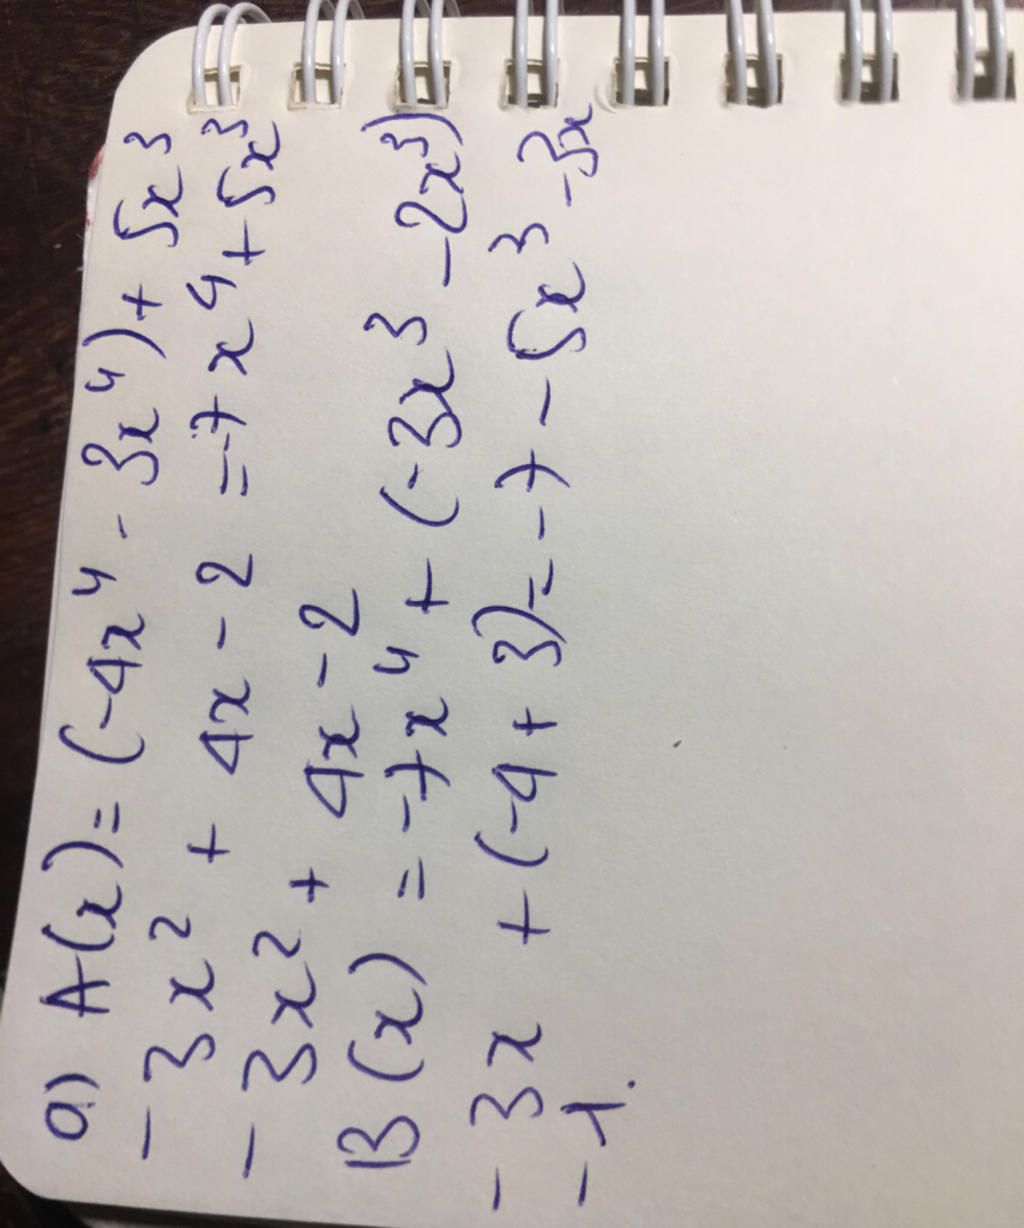 a) A(x) = (-4x⁴ - 3x⁴) + 5x³
- 3x² + 4x - 2 = -7x⁴ + 5x³
- 3x² + 4x - 2
B(x) = -7x⁴ + (-3x³ - 2x³)
- 3x + (-4 + 3) = -7 - 5x³ - 3x
- 1.